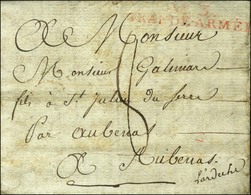 GRANDE ARMÉE
A Monsieur
Monsieur Galimar
fils à St Julien du Serre
Par aubenas
A Aubenas
L'ardeche